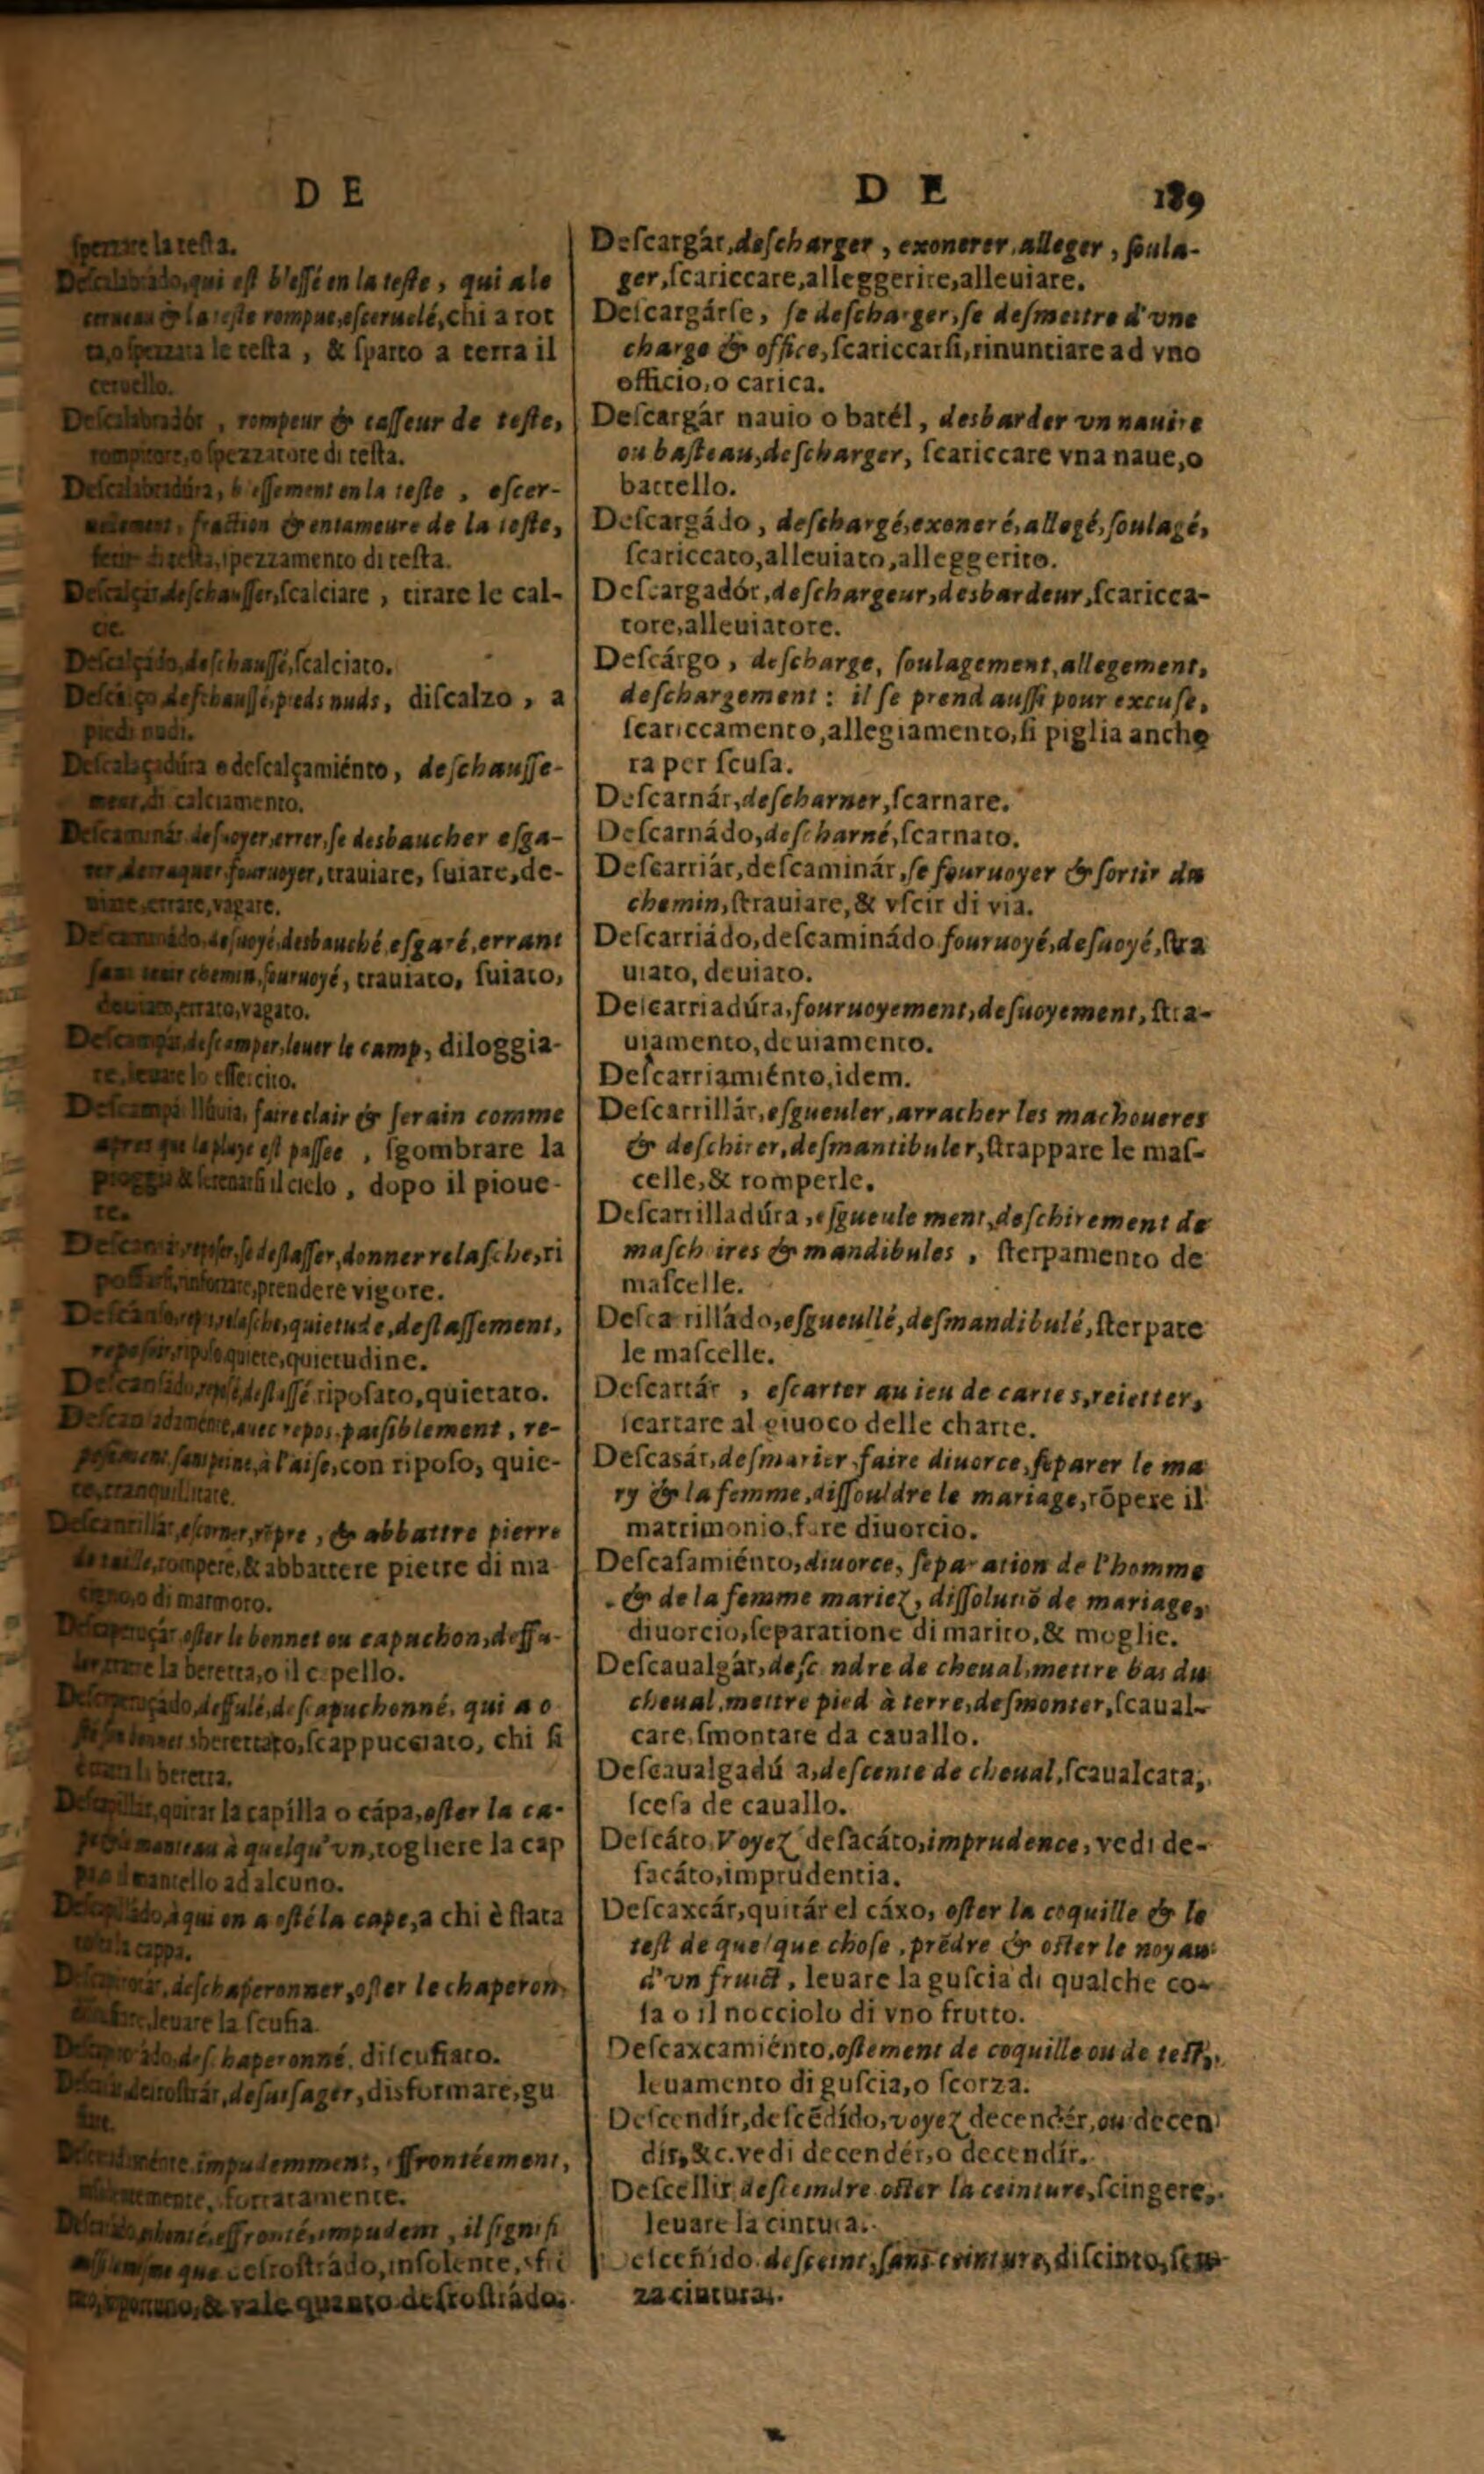 DE
la testa.
Descalabrado, qui est blessé en la teste, qui a le
cerueau & la teste rompue, esceruelé, chi a rot
ta, o spezzata le testa, & sparto a terra il
ceruello.
Descalabradór, rompeur & casseur de teste,
rompitore, o spezzatore di testa.
Descalabradúra, blessement en la teste, escer-
uelement, fraction & entameure de la teste,
di testa, spezzamento di testa.
Descalçár, deschausser, scalciare, tirare le cal-
cie.
Descalçádo, deschaussé, scalciato.
Descalço deschaussé, pieds nuds, discalzo, a
piedi nudi.
Descalaçadúra o descalçamiénto, deschausse-
ment, di calciamento.
Descaminár, desuoyer, errer, se desbaucher esga-
rer, derraquer, fouruoyer, trauiare, suiare, de-
uiare, errare, vagare.
Descaminádo, desuoyé, desbauché, esgaré, errant
sans tenir chemin, fouruoyé, trauiato, suiato,
deuiato, errato, vagato.
Descampár, descamper, leuer le camp, diloggia-
re, leuare lo essercito.
Descampá llúuia, faire clair & serain comme
apres que la pluye est passee, sgombrare la
pioggia & serenarsi il cielo, dopo il pioue-
re.
reposer, se deslasser, donner relasche, ri
possarsi, rinforzare, prendere vigore.
Descánso, repos, relasche, quietude, deslassement,
riposo quiete, quietudine.
Descansádo, reposé, deslassé riposato, quietato.
auec repos, paisiblement, re-
posément, sans peine, à l'aise, con riposo, quie-
te, tranquilitate.
Descantillár, escorner, rõpre, & abbattre pierre
de taille, rompere, & abbattere pietre di ma
cigno, o di marmoro.
Descaperuçár oster le bonnet ou capuchon, deffu-
ler, la beretta, o il cappello.
Descaperuçádo, deffulé, descapuchonné, qui a o
sté son bonnet sberettato, scappucciato, chi si
la beretta.
Descapillár, quitar la capílla o cápa, oster la ca-
manteau à quelqu'vn, togliere la cap
mantello ad alcuno.
à qui on a osté la cape, a chi è stata
tolta la cappa.
deschaperonner, oster le chaperon,
leuare la scufia.
deschaperonné, discufiato.
desrostrár, desuisager, disformare, gu
impudemment, effrontéement,
sfortatamente.
effronté, impudent, il signifi
que desrostrádo, insolente,
& vale quanto desrostrádo.
DE 189
Descargár, descharger, exonerer, alleger, soula-
ger, scariccare, alleggerire, alleuiare.
Descargárse, se descharger, se desmettre d'vne
charge & office, scariccarsi, rinuntiare ad vno
officio, o carica.
Descargár nauio o batél, desbarder vn nauire
ou basteau, descharger, scariccare vna naue, o
battello.
Descargádo, deschargé, exoneré, allegé, soulagé,
scariccato, alleuiato, alleggerito.
Descargadór, deschargeur, desbardeur, scaricca-
tore, alleuiatore.
Descárgo, descharge, soulagement, allegement,
deschargement: il se prend aussi pour excuse,
scariccamento, allegiamento, si piglia ancho
ra per scusa.
Descarnár, descharner, scarnare.
Descarnádo, descharné, scarnato.
Descarriár, descaminár, se fouruoyer & sortir du
chemin, strauiare, & vscir di via.
Descarriádo, descaminádo fouruoyé, desuoyé, stra
uiato, deuiato.
Descarriadúra, fouruoyement, desuoyement, stra-
uiamento, deuiamento.
Descarriamiénto, idem.
Descarrillár, esgueuler, arracher les machoueres
& deschirer, desmantibuler, strappare le mas-
celle, & romperle.
Descarrilladúra, esgueulement, deschirement de
maschoires & mandibules, sterpamento de
mascelle.
Descarrilládo, esgueullé, desmandibulé, sterpate
le mascelle.
Descartár, escarter au ieu de cartes, reietter,
scartare al giuoco delle charte.
Descasár, desmarier, faire diuorce, separer le ma
ry & la femme, dissouldre le mariage, rõpere il
matrimonio, fare diuorcio.
Descasamiénto, diuorce, separation de l'homme
& de la femme mariez, dissolutiõ de mariage,
diuorcio, separatione di marito, & moglie.
Descaualgár, descendre de cheual, mettre bas du
cheual, mettre pied à terre, desmonter, scaual-
care, smontare da cauallo.
Descaualgadúra, descente de cheual, scaualcata,
scesa de cauallo.
Descáto, Voyez desacáto, imprudence, vedi de-
sacáto, imprudentia.
Descaxcár, quitár el cáxo, oster la coquille & le
test de quelque chose, prẽdre & oster le noyau
d'vn fruict, leuare la guscia di qualche co-
sa o il nocciolo di vno frutto.
Descaxcamiénto, ostement de coquille ou de test,
leuamento di guscia, o scorza.
Descendír, descẽdído, voyez decendér, ou decen
dír, &c. vedi decendér, o decendír.
Desceñir desceindre oster la ceinture, scingere,
leuare la cintura.
esceñido desceint, sans ceinture, discinto, sen-
za cintura.